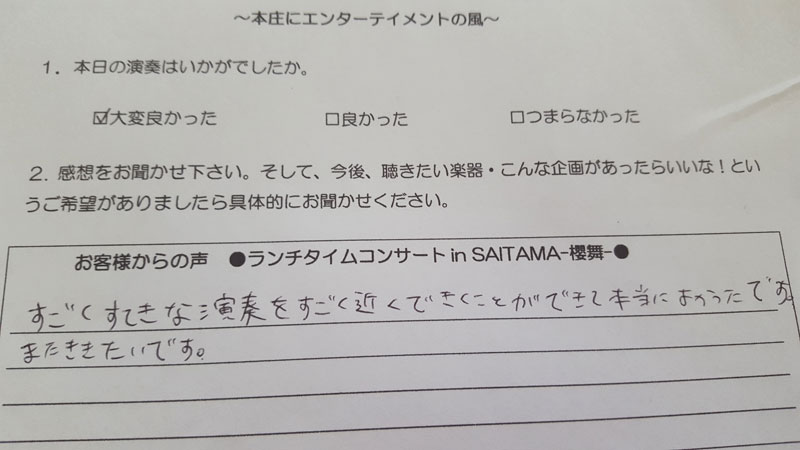 ～本庄にエンターテイメントの風～
1．本日の演奏はいかがでしたか。
☑大変良かった □良かった □つまらなかった
2．感想をお聞かせ下さい。そして、今後、聴きたい楽器・こんな企画があったらいいな！とい
うご希望がありましたら具体的にお聞かせください。
お客様からの声 ●ランチタイムコンサート in SAITAMA-櫻舞-●
すごくすてきな演奏をすごく近くできくことができて本当によかったです。
またききたいです。